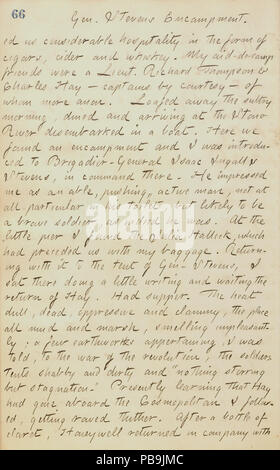 66
Gen. Stevens Encampment.
ed us considerable hospitality in the form of
cigars, cider and whiskey. My aid-de-camp
friends were a Lieut. Richard Thompson &
Charles Hay — captains by courtesy — of
whom more anon. Loafed away the sultry
morning, dined and arriving at the Stono
River disembarked in a boat. Here we
found an encampment and I was introdu-
ced to Brigadier-General Isaac Ingall
Stevens, in command there. He impressed
me as an able, pushing, active man, not at
all particular as to but likely to be
a brave soldier, as indeed he was. At the
little pier I found the Delia Hallock, which
had preceded us with my baggage. Return-
ing with it to the tent of Gen. Stevens, I
sat there doing a little writing and waiting the
return of Hay. Had supper. The heat
dull, dead, oppressive and clammy, the place
all mud and marsh, smelling unpleasant-
ly; a few earthworks appertaining, I was
told, to the war of the revolution; the soldiers
tents shabby and dirty and "nothing stirring
but stagnation." Presently learning that Hay
had gone aboard the Cosmopolitan I follow-
ed, getting rowed thither. After a bottle of
claret, Honeywell returned in company with
alamy
alamy
Image ID: PB9JMC
www.alamy.com